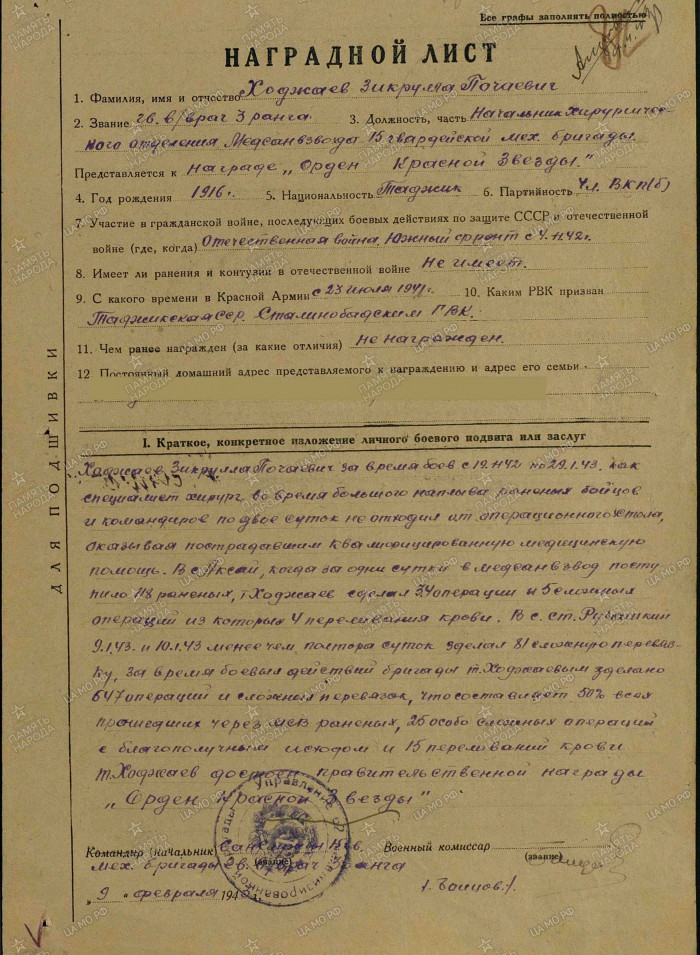 Все графы заполнять полностью
НАГРАДНОЙ ЛИСТ
1. Фамилия, имя и отчество Ходжаев Зикрулла Почаевич
2. Звание Гв. в/врач 3 ранга 3. Должность, часть Начальник хирургичес-
кого отделения Медсанвзвода 15 гвардейской мех. бригады.
Представляется к Награде „Орден Красной Звезды."
4. Год рождения 1916 г. 5. Национальность Таджик 6. Партийность Чл. ВКП(б)
7. Участие в гражданской войне, последующих боевых действиях по защите СССР и отечественной
войне (где, когда) Отечественная война, Южный фронт с 42 г.
8. Имеет ли ранения и контузии в отечественной войне Не имеет.
9. С какого времени в Красной Армии с 23 июля 1941 г. 10. Каким РВК призван
Таджикская ССР. Сталинобадским ГВК.
11. Чем ранее награжден (за какие отличия) Не награжден.
12 Постоянный домашний адрес представляемого к награждению и адрес его семьи
ДЛЯ ПОДШИВКИ
I. Краткое, конкретное изложение личного боевого подвига или заслуг
Ходжаев Зикрулла Почаевич за время боев с 19.11.42 по 29.1.43. как
специалист хирург во время большого наплыва раненых бойцов
и командиров по двое суток не отходил от операционного стола,
оказывая пострадавшим квалифицированную медицинскую
помощь. В с. Аксай, когда за одни сутки в медсанвзвод посту
пило 118 раненых, т Ходжаев сделал 34 операции и 5 сложных
операций из которых 4 переливания крови. В с. ст. Рубашкин
9.1.43. и 10.1.43 менее чем, полтора суток зделал 81 сложную перевяз-
ку, за время боевых действий бригады т. Ходжаевым зделано
647 операций и сложных перевязок, что составляет 50% всех
прошедших через МСВ раненых, 26 особо сложных операций
с благополучным исходом и 15 переливаний крови
т. Ходжаев достоин правительственной награды
„Орден Красной Звезды"
Командир (начальник) 15 гв. Военный комиссар
(звание) (звание)
мех. бригады гв. в/врач ранга
„9" февраля 194